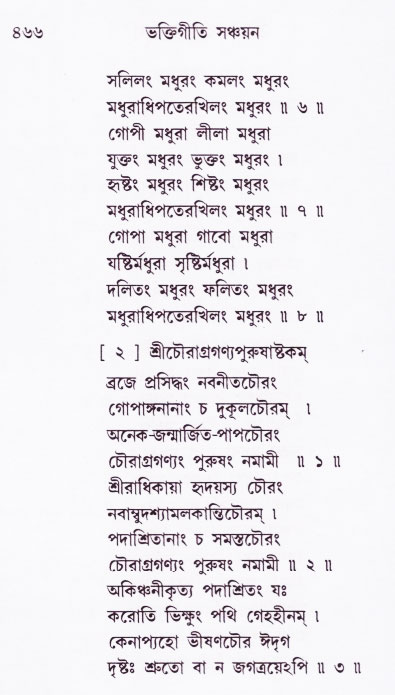 ৪৬৬ ভক্তিগীতি সঞ্চয়ন
সলিলং মধুরং কমলং মধুরং
মধুরাধিপতেরখিলং মধুরং ॥ ৬ ॥
গোপী মধুরা লীলা মধুরা
যুক্তং মধুরং ভুক্তং মধুরং ।
হৃষ্টং মধুরং শিষ্টং মধুরং
মধুরাধিপতেরখিলং মধুরং ॥ ৭ ॥
গোপা মধুরা গাবো মধুরা
যষ্টির্মধুরা সৃষ্টির্মধুরা ।
দলিতং মধুরং ফলিতং মধুরং
মধুরাধিপতেরখিলং মধুরং ॥ ৮ ॥
[ ২ ] শ্রীচৌরাগ্রগণ্যপুরুষাষ্টকম্
ব্রজে প্রসিদ্ধং নবনীতচৌরং
গোপাঙ্গনানাং চ দুকূলচৌরম্ ।
অনেক-জন্মার্জিত-পাপচৌরং
চৌরাগ্রগণ্যং পুরুষং নমামী ॥ ১ ॥
শ্রীরাধিকায়া হৃদয়স্য চৌরং
নবাম্বুদশ্যামলকান্তিচৌরম্ ।
পদাশ্রিতানাং চ সমস্তচৌরং
চৌরাগ্রগণ্যং পুরুষং নমামী ॥ ২ ॥
অকিঞ্চনীকৃত্য পদাশ্রিতং যঃ
করোতি ভিক্ষুং পথি গেহহীনম্ ।
কেনাপ্যহো ভীষণচৌর ঈদৃগ
দৃষ্টঃ শ্রুতো বা ন জগত্রয়েঽপি ॥ ৩ ॥